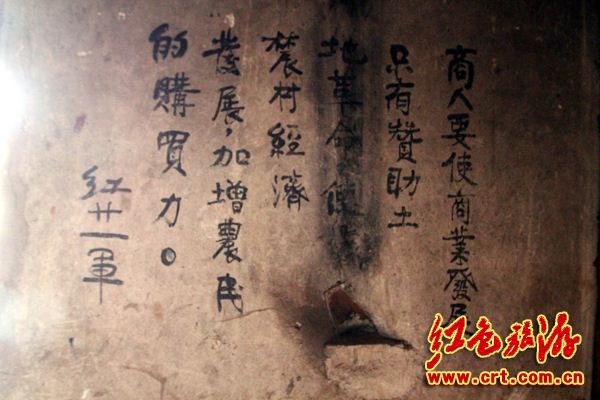 商人要使商業發展
只有贊助土
地革命使
農村經濟
發展，加增農民
的購買力。
紅廿一軍
红色旅游
www.crt.com.cn